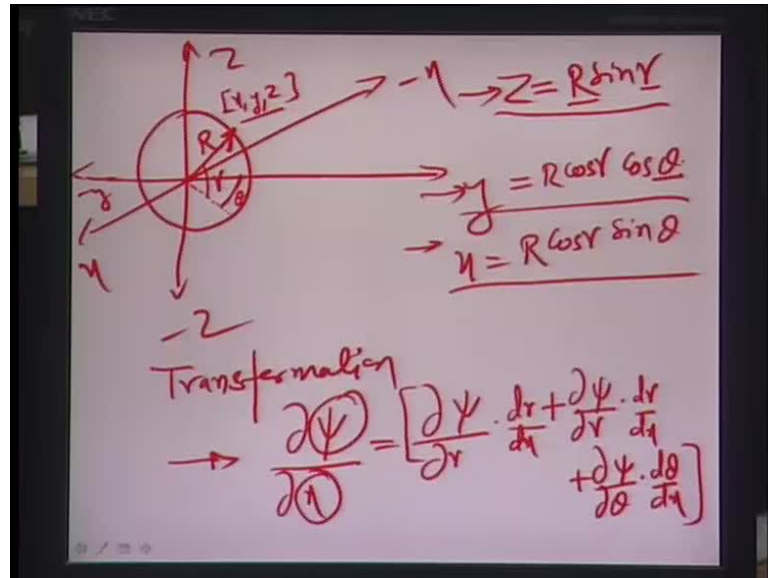 NEC
Z
[x, y, z]
-x
→ Z = R sin γ
R
γ
θ
-y
→ y = R cos γ cos θ
→ x = R cos γ sin θ
x
-Z
Transformation
→ ∂ψ/∂x = [∂ψ/∂r · dr/dx + ∂ψ/∂γ · dγ/dx
+ ∂ψ/∂θ · dθ/dx]